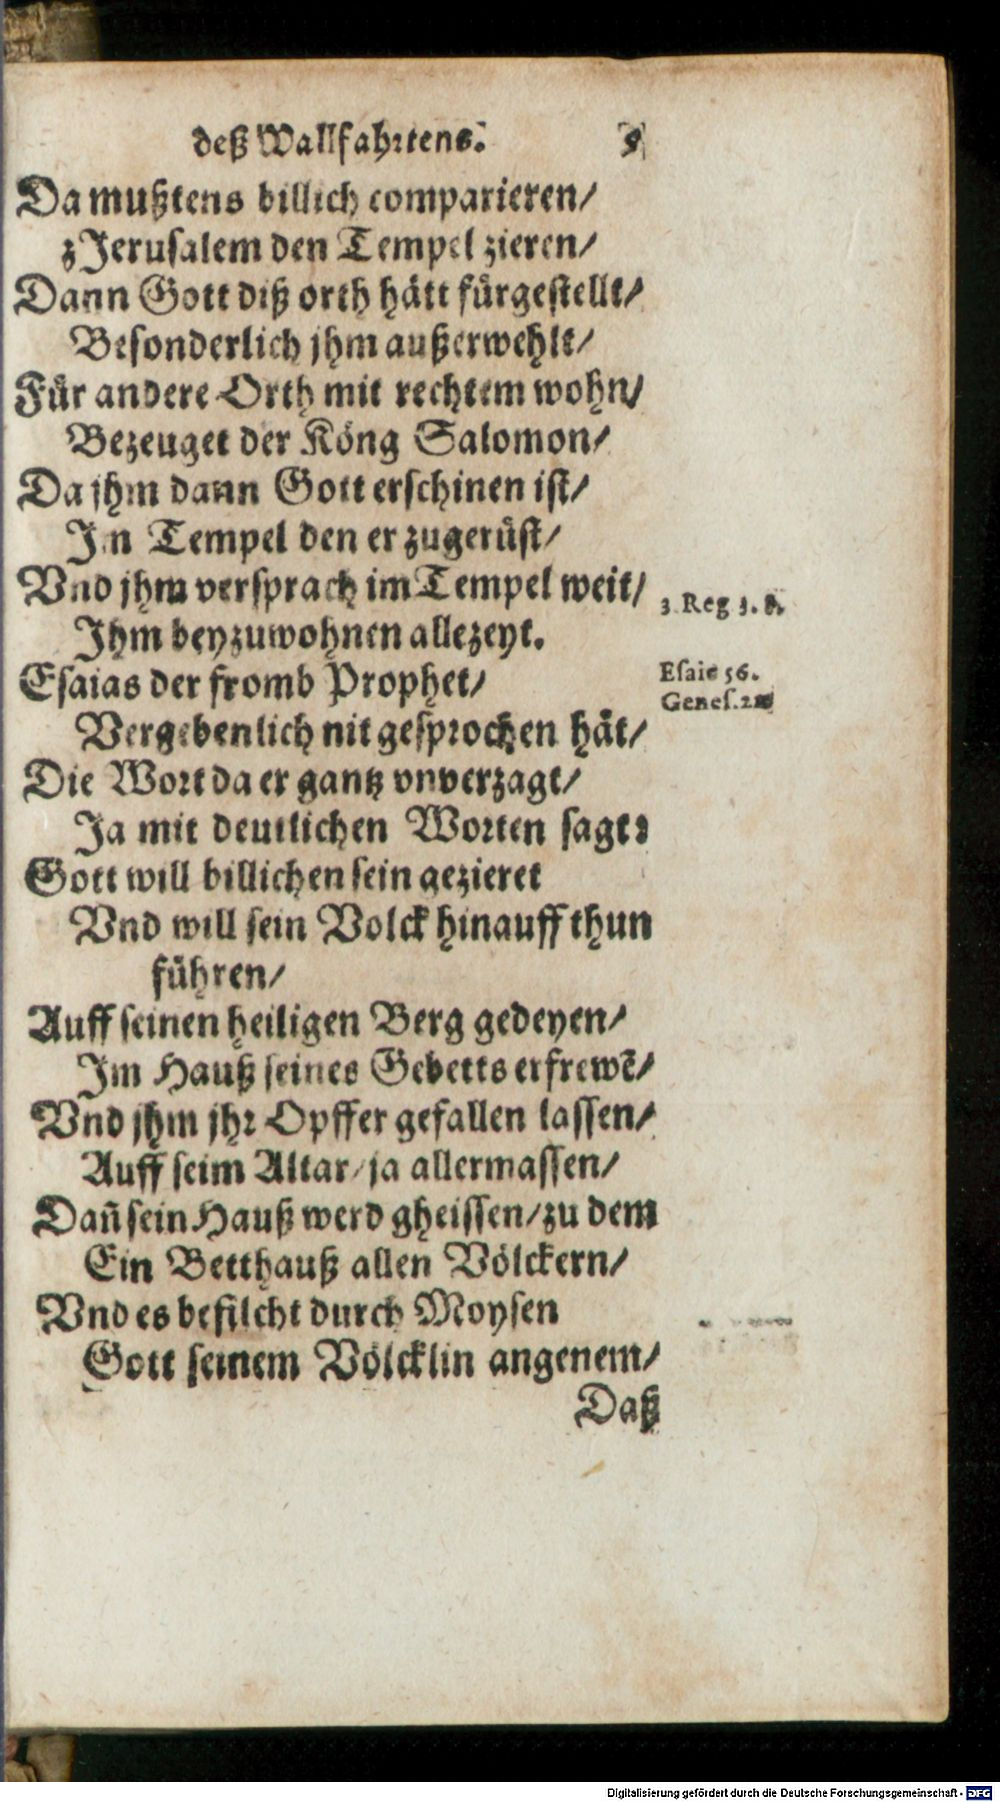 deß Wallfahrtens. 5
Da mußtens billich comparieren/
zJerusalem den Tempel zieren/
Dann Gott diß orth hätt fürgestellt/
Besonderlich jhm außerwehlt/
Für andere Orth mit rechtem wohn/
Bezeuget der Köng Salomon/
Da jhm dann Gott erschinen ist/
Im Tempel den er zugerüst/
Vnd jhm versprach im Tempel weit/
3. Reg 3. 8.
Ihm beyzuwohnen allezeyt.
Esaias der fromb Prophet/
Esaie 56.
Genes.
Vergebenlich nit gesprochen hät/
Die Wort da er gantz vnverzagt/
Ja mit deutlichen Worten sagt:
Gott will billichen sein gezieret
Vnd will sein Volck hinauff thun
führen/
Auff seinen heiligen Berg gedeyen/
Im Hauß seines Gebetts erfrewē/
Vnd jhm jhr Opffer gefallen lassen/
Auff seim Altar/ja allermassen/
Dañ sein Hauß werd gheissen/zu dem
Ein Betthauß allen Völckern/
Vnd es befilcht durch Moysen
Gott seinem Völcklin angenem/
Daß
Digitalisierung gefördert durch die Deutsche Forschungsgemeinschaft - DFG